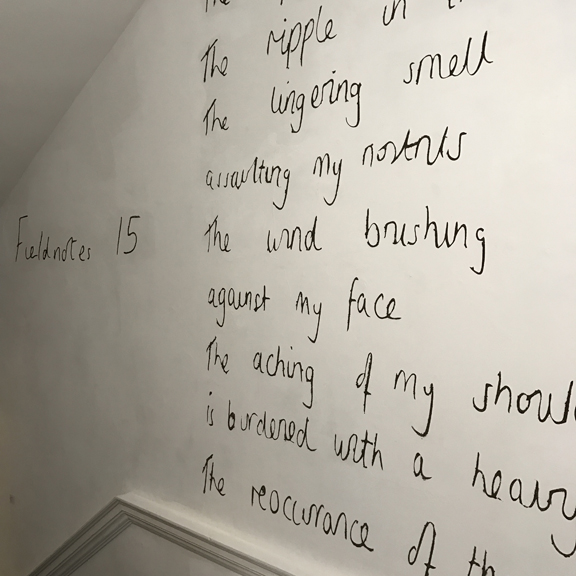 The ripple in
The lingering smell
assaulting my nostrils
Fieldnotes 15
The wind brushing
against my face
The aching of my
is burdened with a heavy
The reoccurance of